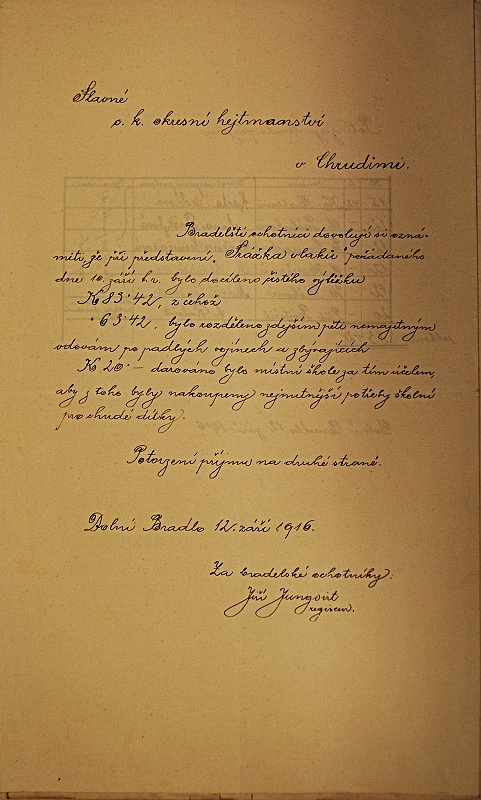 Slavné
c. k. okresní hejtmanství
v Chrudimi.
Bradelští ochotníci dovolují si ozná-
miti, že při představení „Srážka vlaků" pořádaného
dne 10. září t. r. bylo docíleno čistého výtěžku
K 83·42, z čehož
" 63·42, bylo rozděleno zdejším pěti nemajetným
vdovám po padlých vojínech a zbývajících
K 20·— darováno bylo místní škole za tím účelem,
aby z toho byly nakoupeny nejnutnější potřeby školní
pro chudé dítky.
Potvrzení příjmu na druhé straně.
Dolní Bradlo 12. září 1916.
Za bradelské ochotníky:
Jiří Jungvirt
regisseur.